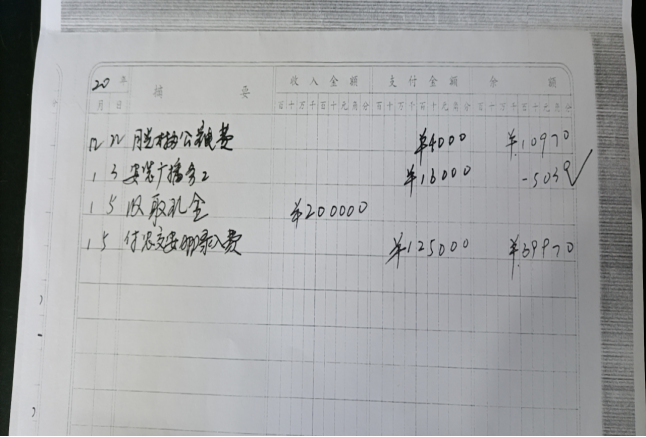 20 年 摘 要 收入金额 支付金额 余 额
月 日 百十万千百十元角分 百十万千百十元角分 百十万千百十元角分
12 22 公 费 ¥4000 ¥10970
1 3 安装广播 ¥16000 -5030
1 5 收取礼金 ¥200000
1 5 付农交安 录入费 ¥125000 ¥69970